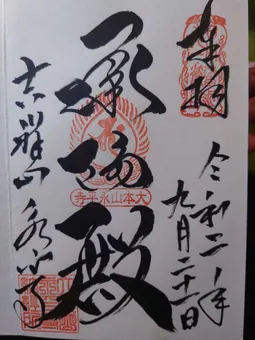 奉拝
令和二年
九月二十一日
承陽殿
大本山永平寺
吉祥山 永平寺